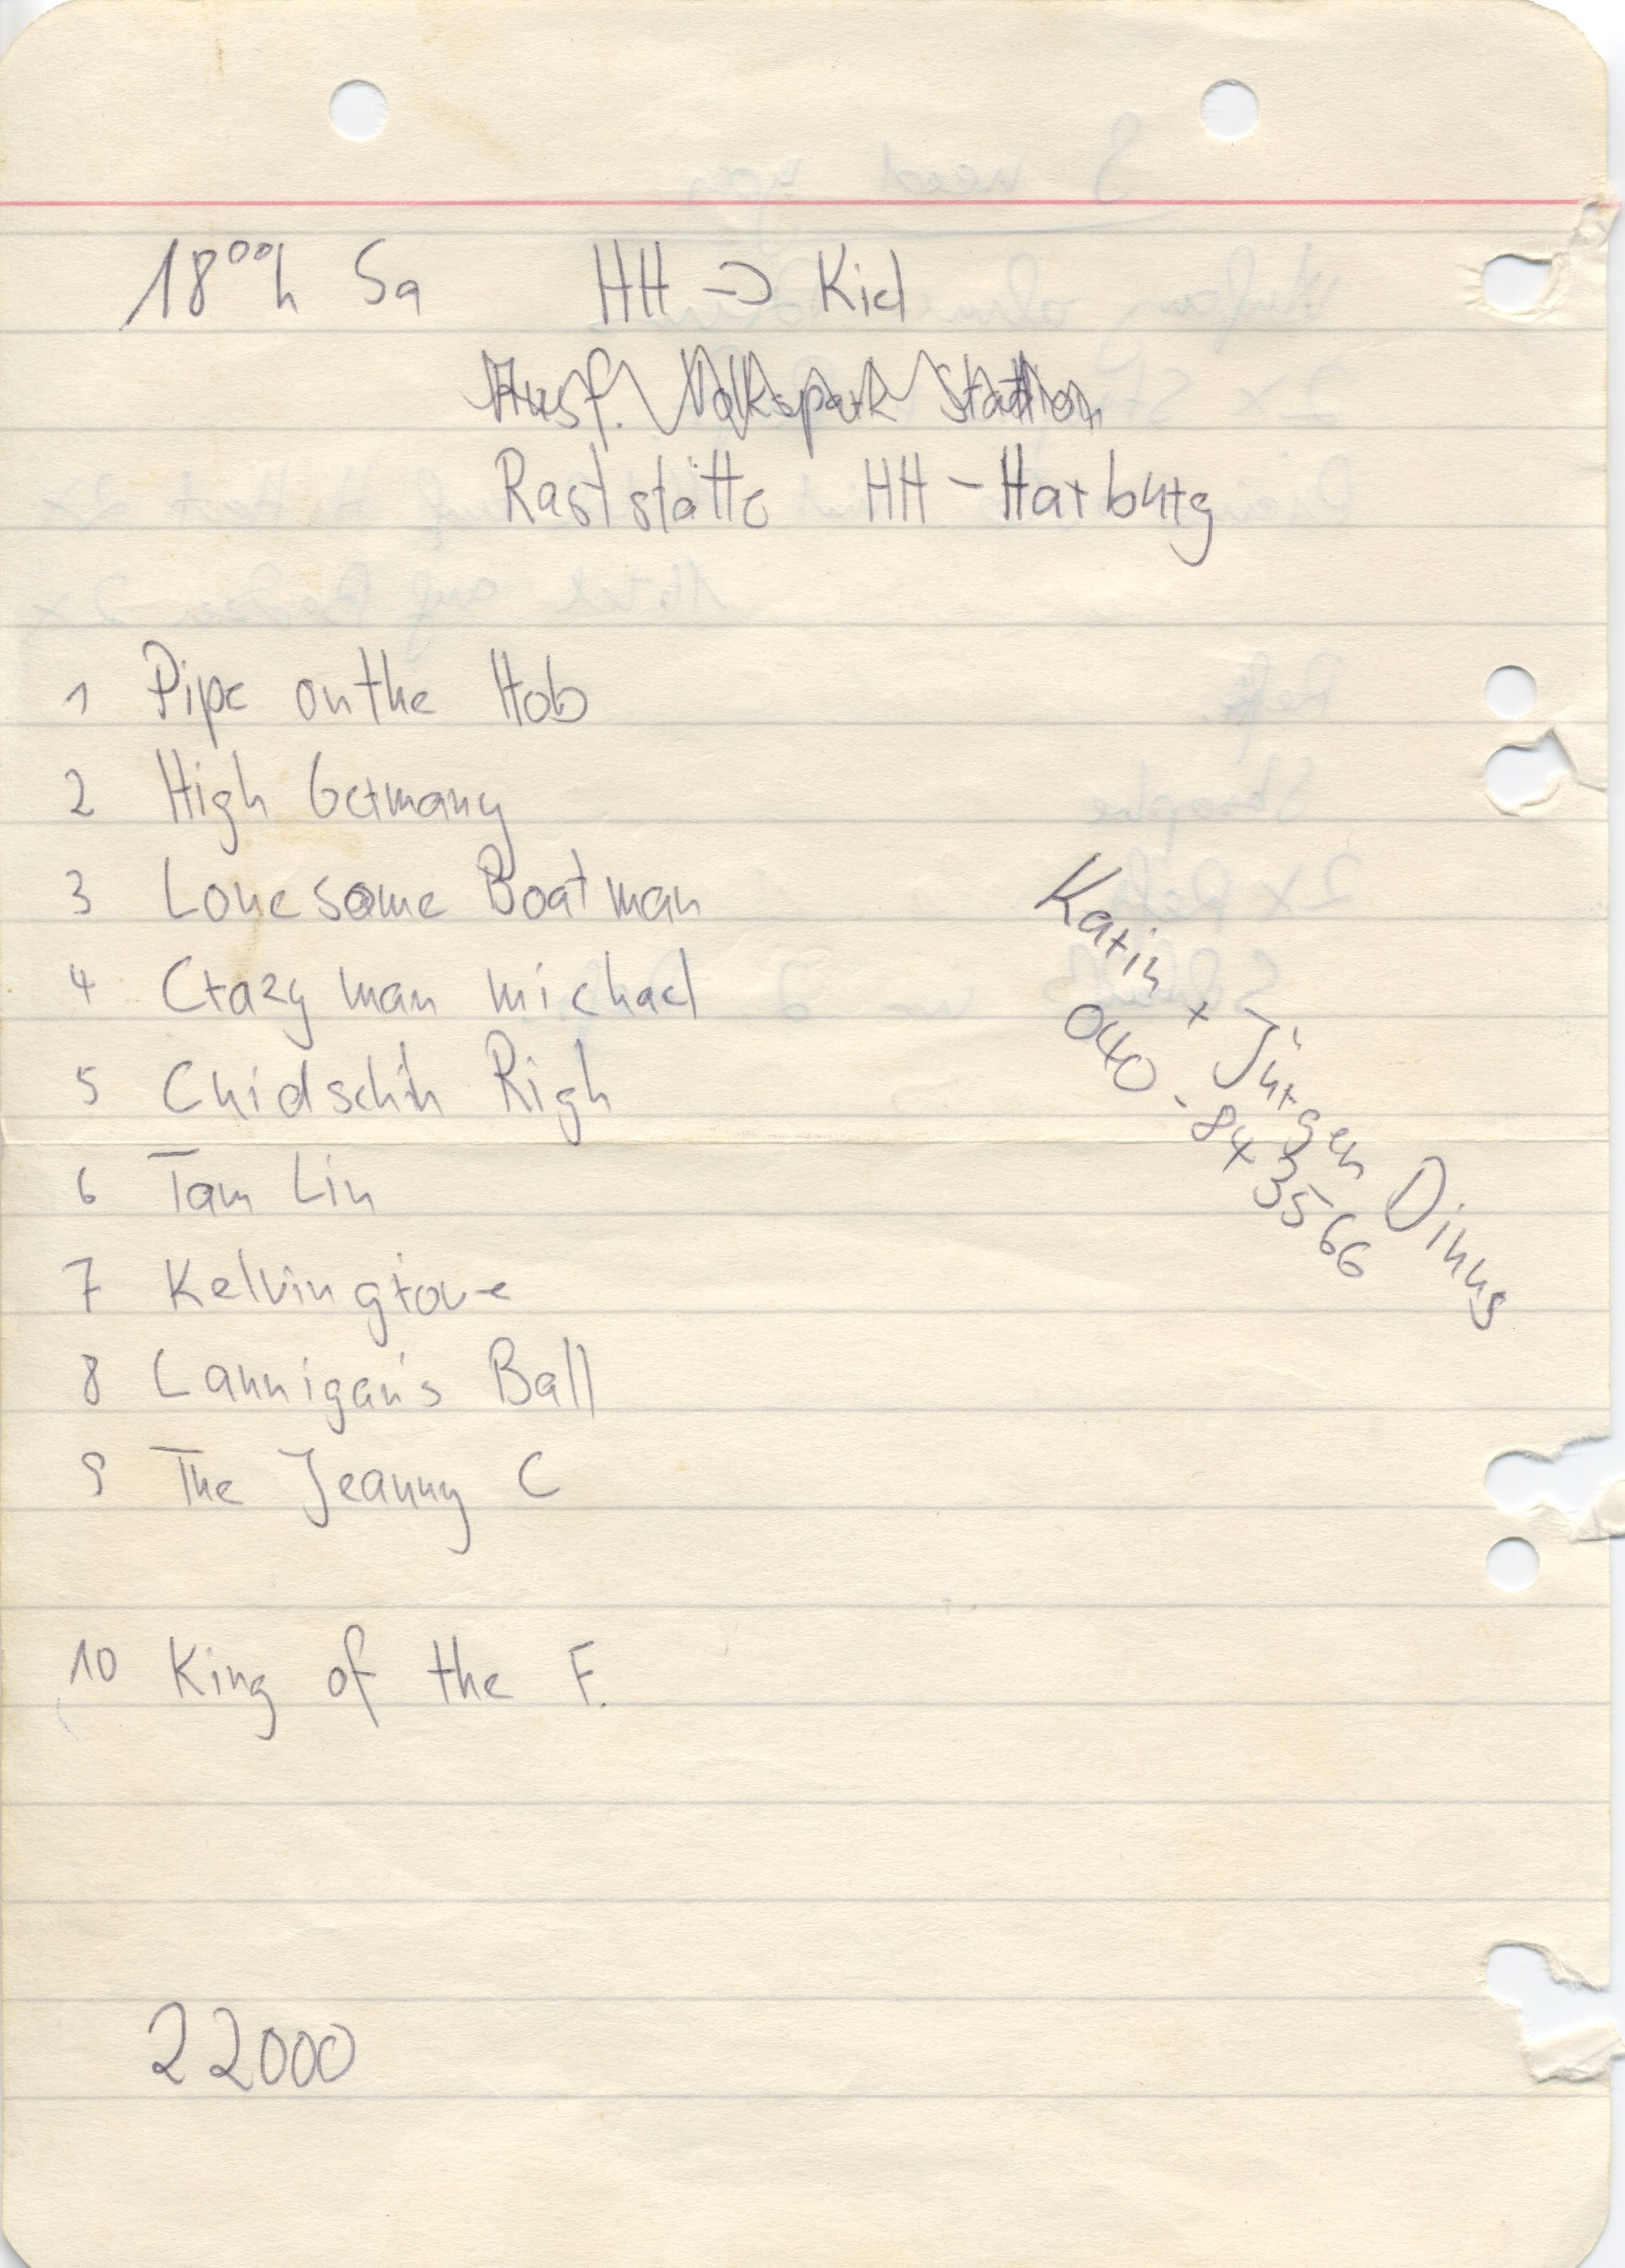 18ººh Sa HH → Kiel
Ausf. Volkspark Stadion
Raststätte HH - Harburg
1 Pipe on the Hob
2 High Germany
3 Lonesome Boatman
4 Crazy man michael
5 Cuidsch'n Righ
6 Tam Lin
7 Kelvingrove
8 Lannigan's Ball
9 The Jeanny C
10 King of the F.
Karin + Jürgen Dinus
040 - 84 35 66
22000